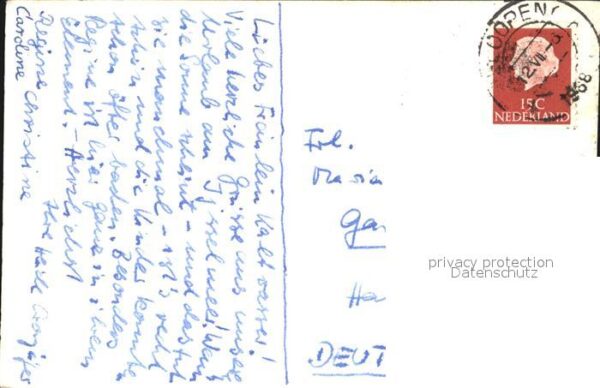 Liebes Fräulein Kaltwasser!
Viele herzliche Grüsse aus unserem
Urlaub am Ijsselmeer. Wenn
die Sonne scheint - und das tut
sie manchmal - ist's recht
schön und die Kinder konnten
schon öfter baden. Besonders
Regine ist hier ganz in ihrem
Element. - Herzlichst
Ihre Heide
Regine Christine
Caroline
Frl.
Maria
Ga
Ha
DEUT
15C
NEDERLAND
12 VII
1968
privacy protection
Datenschutz